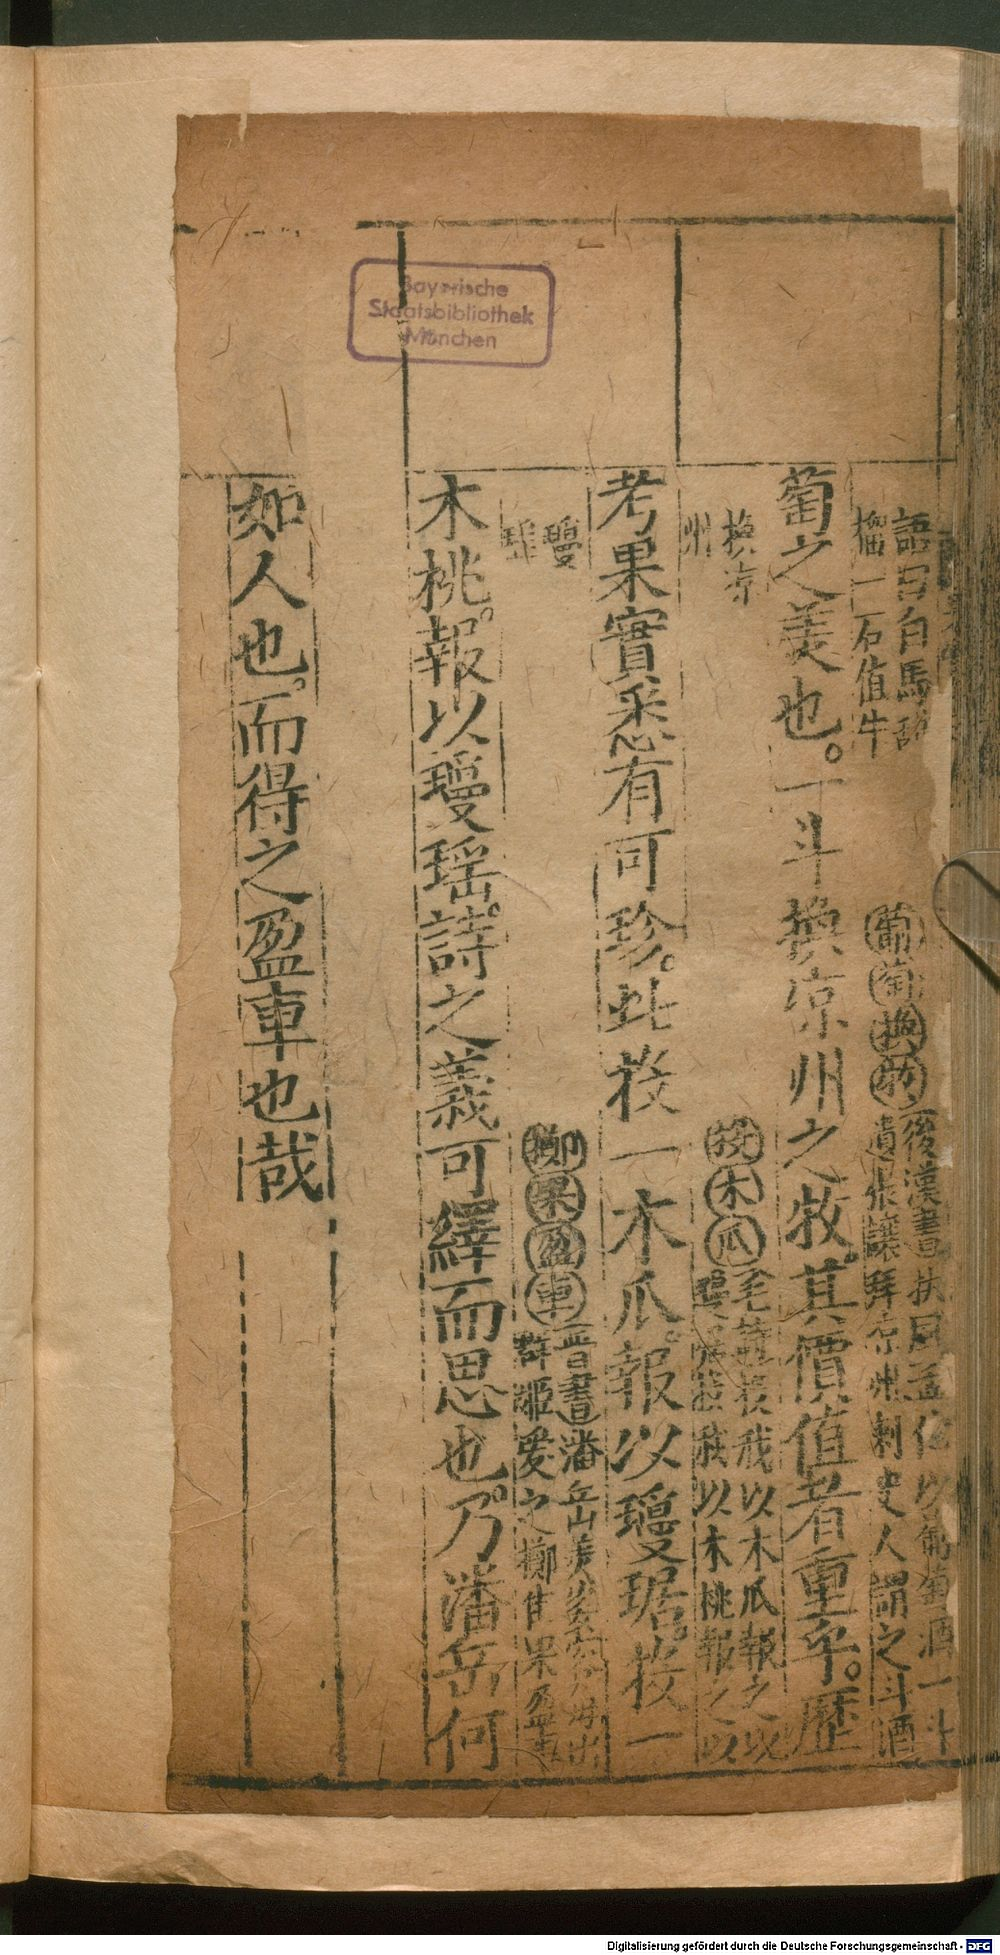 語曰白馬甜
榴一石值牛
葡萄換牧
後漢書扶風孟佗以葡萄酒一斗
遺張讓拜凉州刺史人謂之斗酒
換凉
州
萄之美也。一斗換凉州之牧。其價值者重乎。歷
投木瓜
毛詩投我以木瓜報之以
瓊琚投我以木桃報之以
瓊
瑤
考果實悉有可珍。此投一木瓜。報以瓊琚。投一
擲果盈車
晋書潘岳美姿容每出
群姬愛之擲隹果盈車
木桃。報以瓊瑶。詩之義可繹而思也。乃潘岳何
如人也。而得之盈車也哉
Bayerische
Staatsbibliothek
München
Digitalisierung gefördert durch die Deutsche Forschungsgemeinschaft - DFG